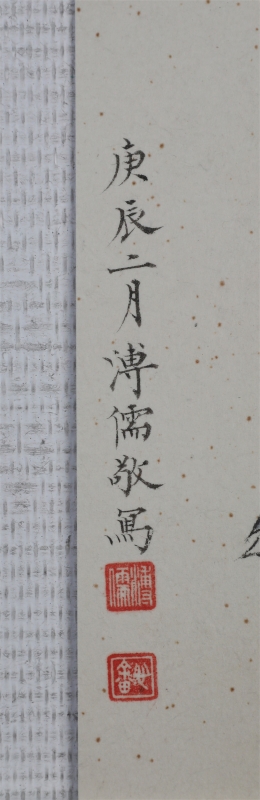 庚辰二月溥儒敬寫
溥儒